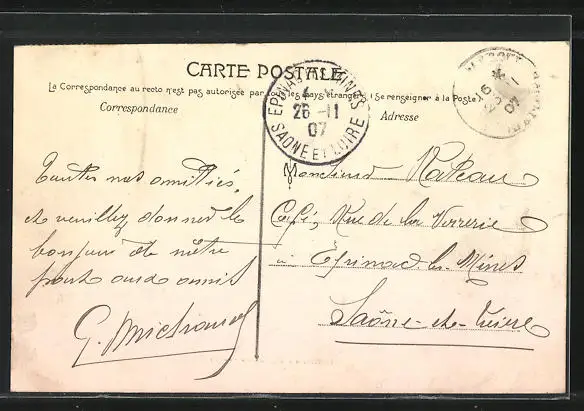 CARTE POSTALE
La Correspondance au recto n'est pas autorisée par tous les pays étrangers (Se renseigner à la Poste)
Correspondance
Adresse
EPINAC LES MINES
4
26 -11
07
SAONE ET LOIRE
16
07
Toutes nos amitiés,
et veuillez donner le
bonjour de notre
part aux amis
G.
Monsieur Rateau
Café, Rue de la Verrerie
à Epinac les Mines
Saône-et-Loire